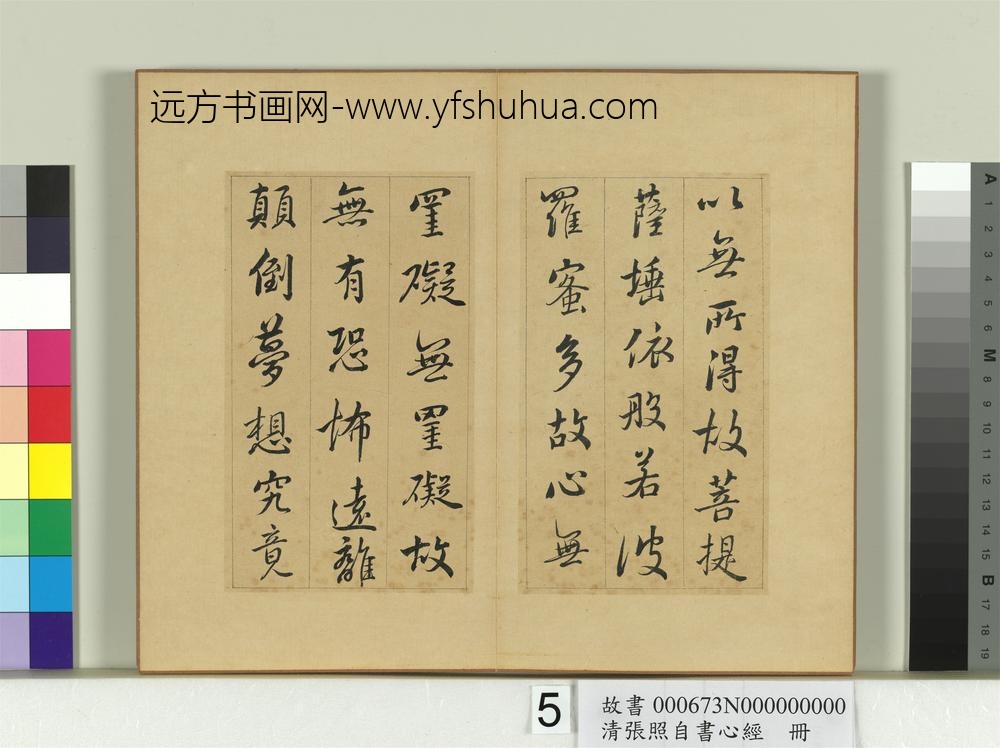 远方书画网-www.yfshuhua.com
以無所得故菩提
薩埵依般若波
羅蜜多故心無
罣礙無罣礙故
無有恐怖遠離
顛倒夢想究竟
A 1 2 3 4 5 6 M 8 9 10 11 12 13 14 15 B 17 18 19
5
故書 000673N000000000
清張照自書心經 冊